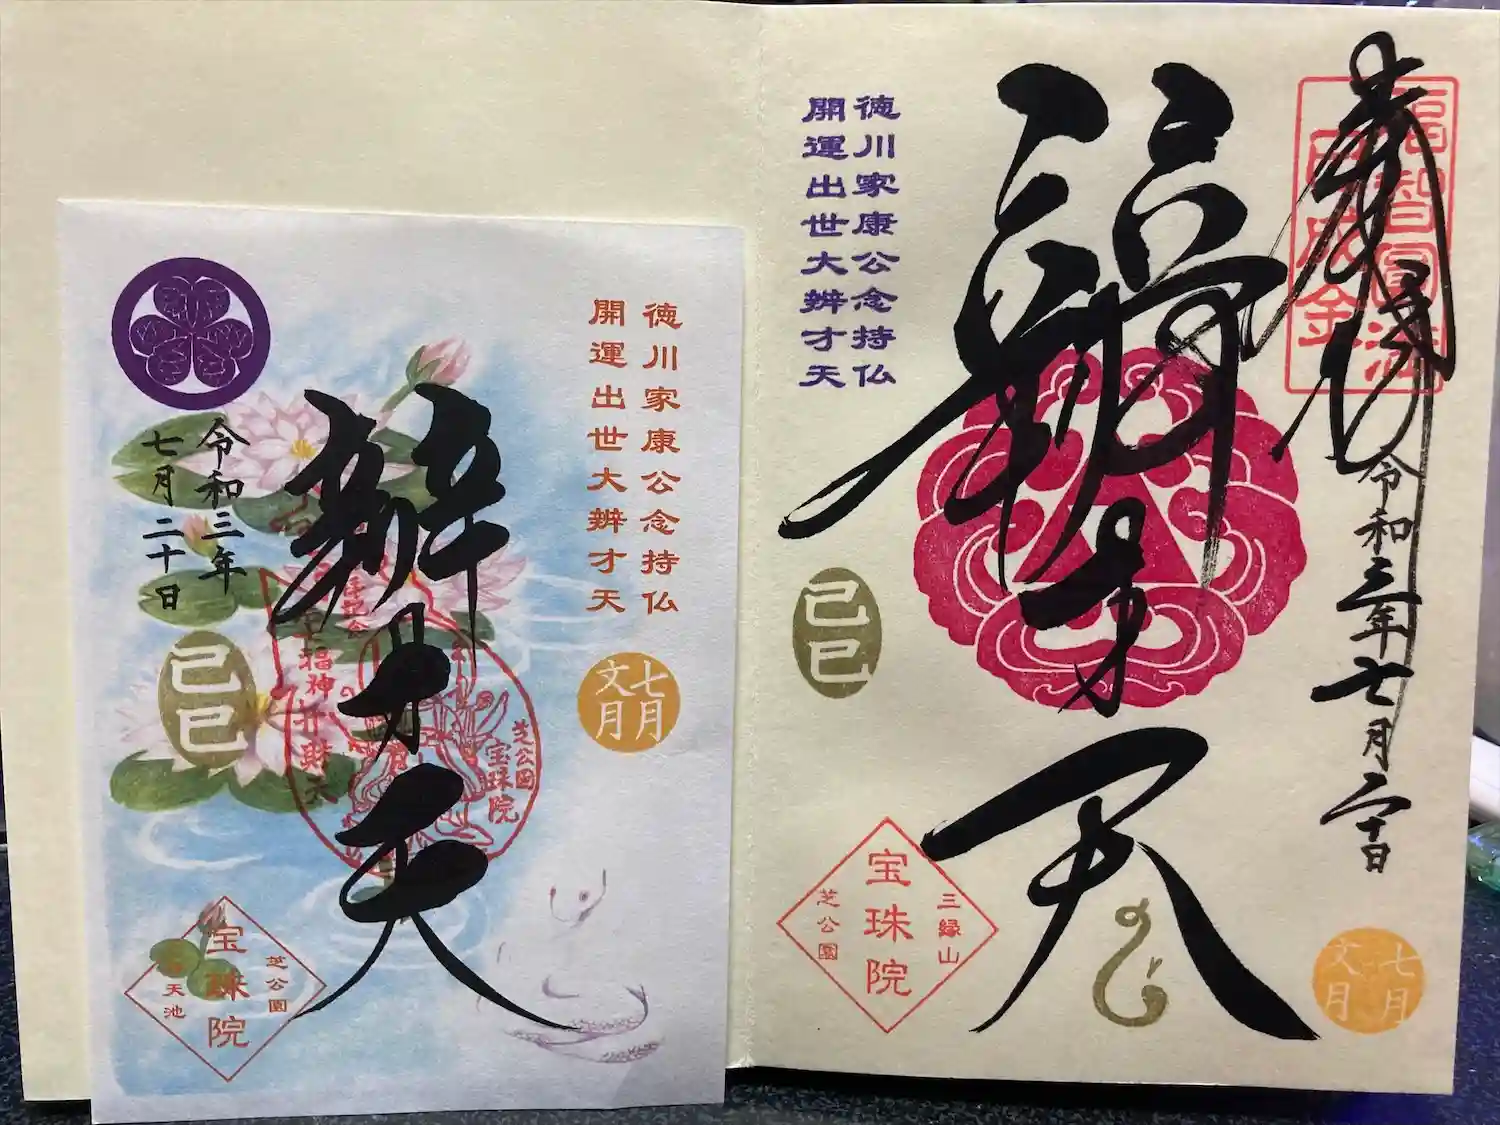 奉拝
福智圓満
巳成金
令和三年七月二十日
辨才天
徳川家康公念持仏
開運出世大辨才天
己巳
三縁山
宝珠院
芝公園
七月
文月
徳川家康公念持仏
開運出世大辨才天
七月
文月
辨才天
令和三年
七月二十日
己巳
福神弁財天
芝公園
宝珠院
芝公園
宝珠院
弁天池